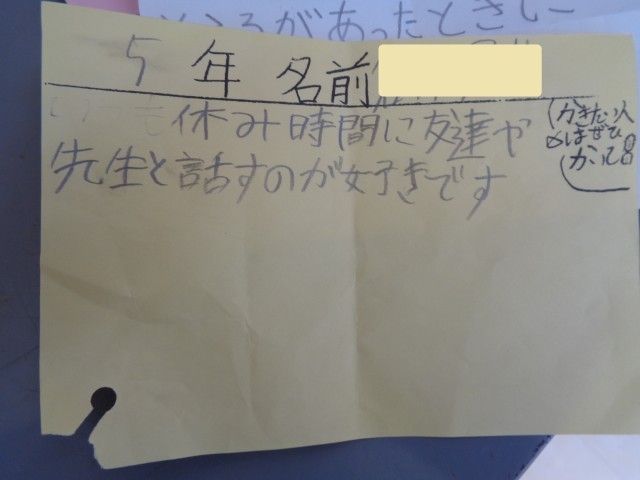 ころがあったときに
5年 名前
休み時間に友達や
先生と話すのが好きです
かきたい人
はぜひ
かいてね